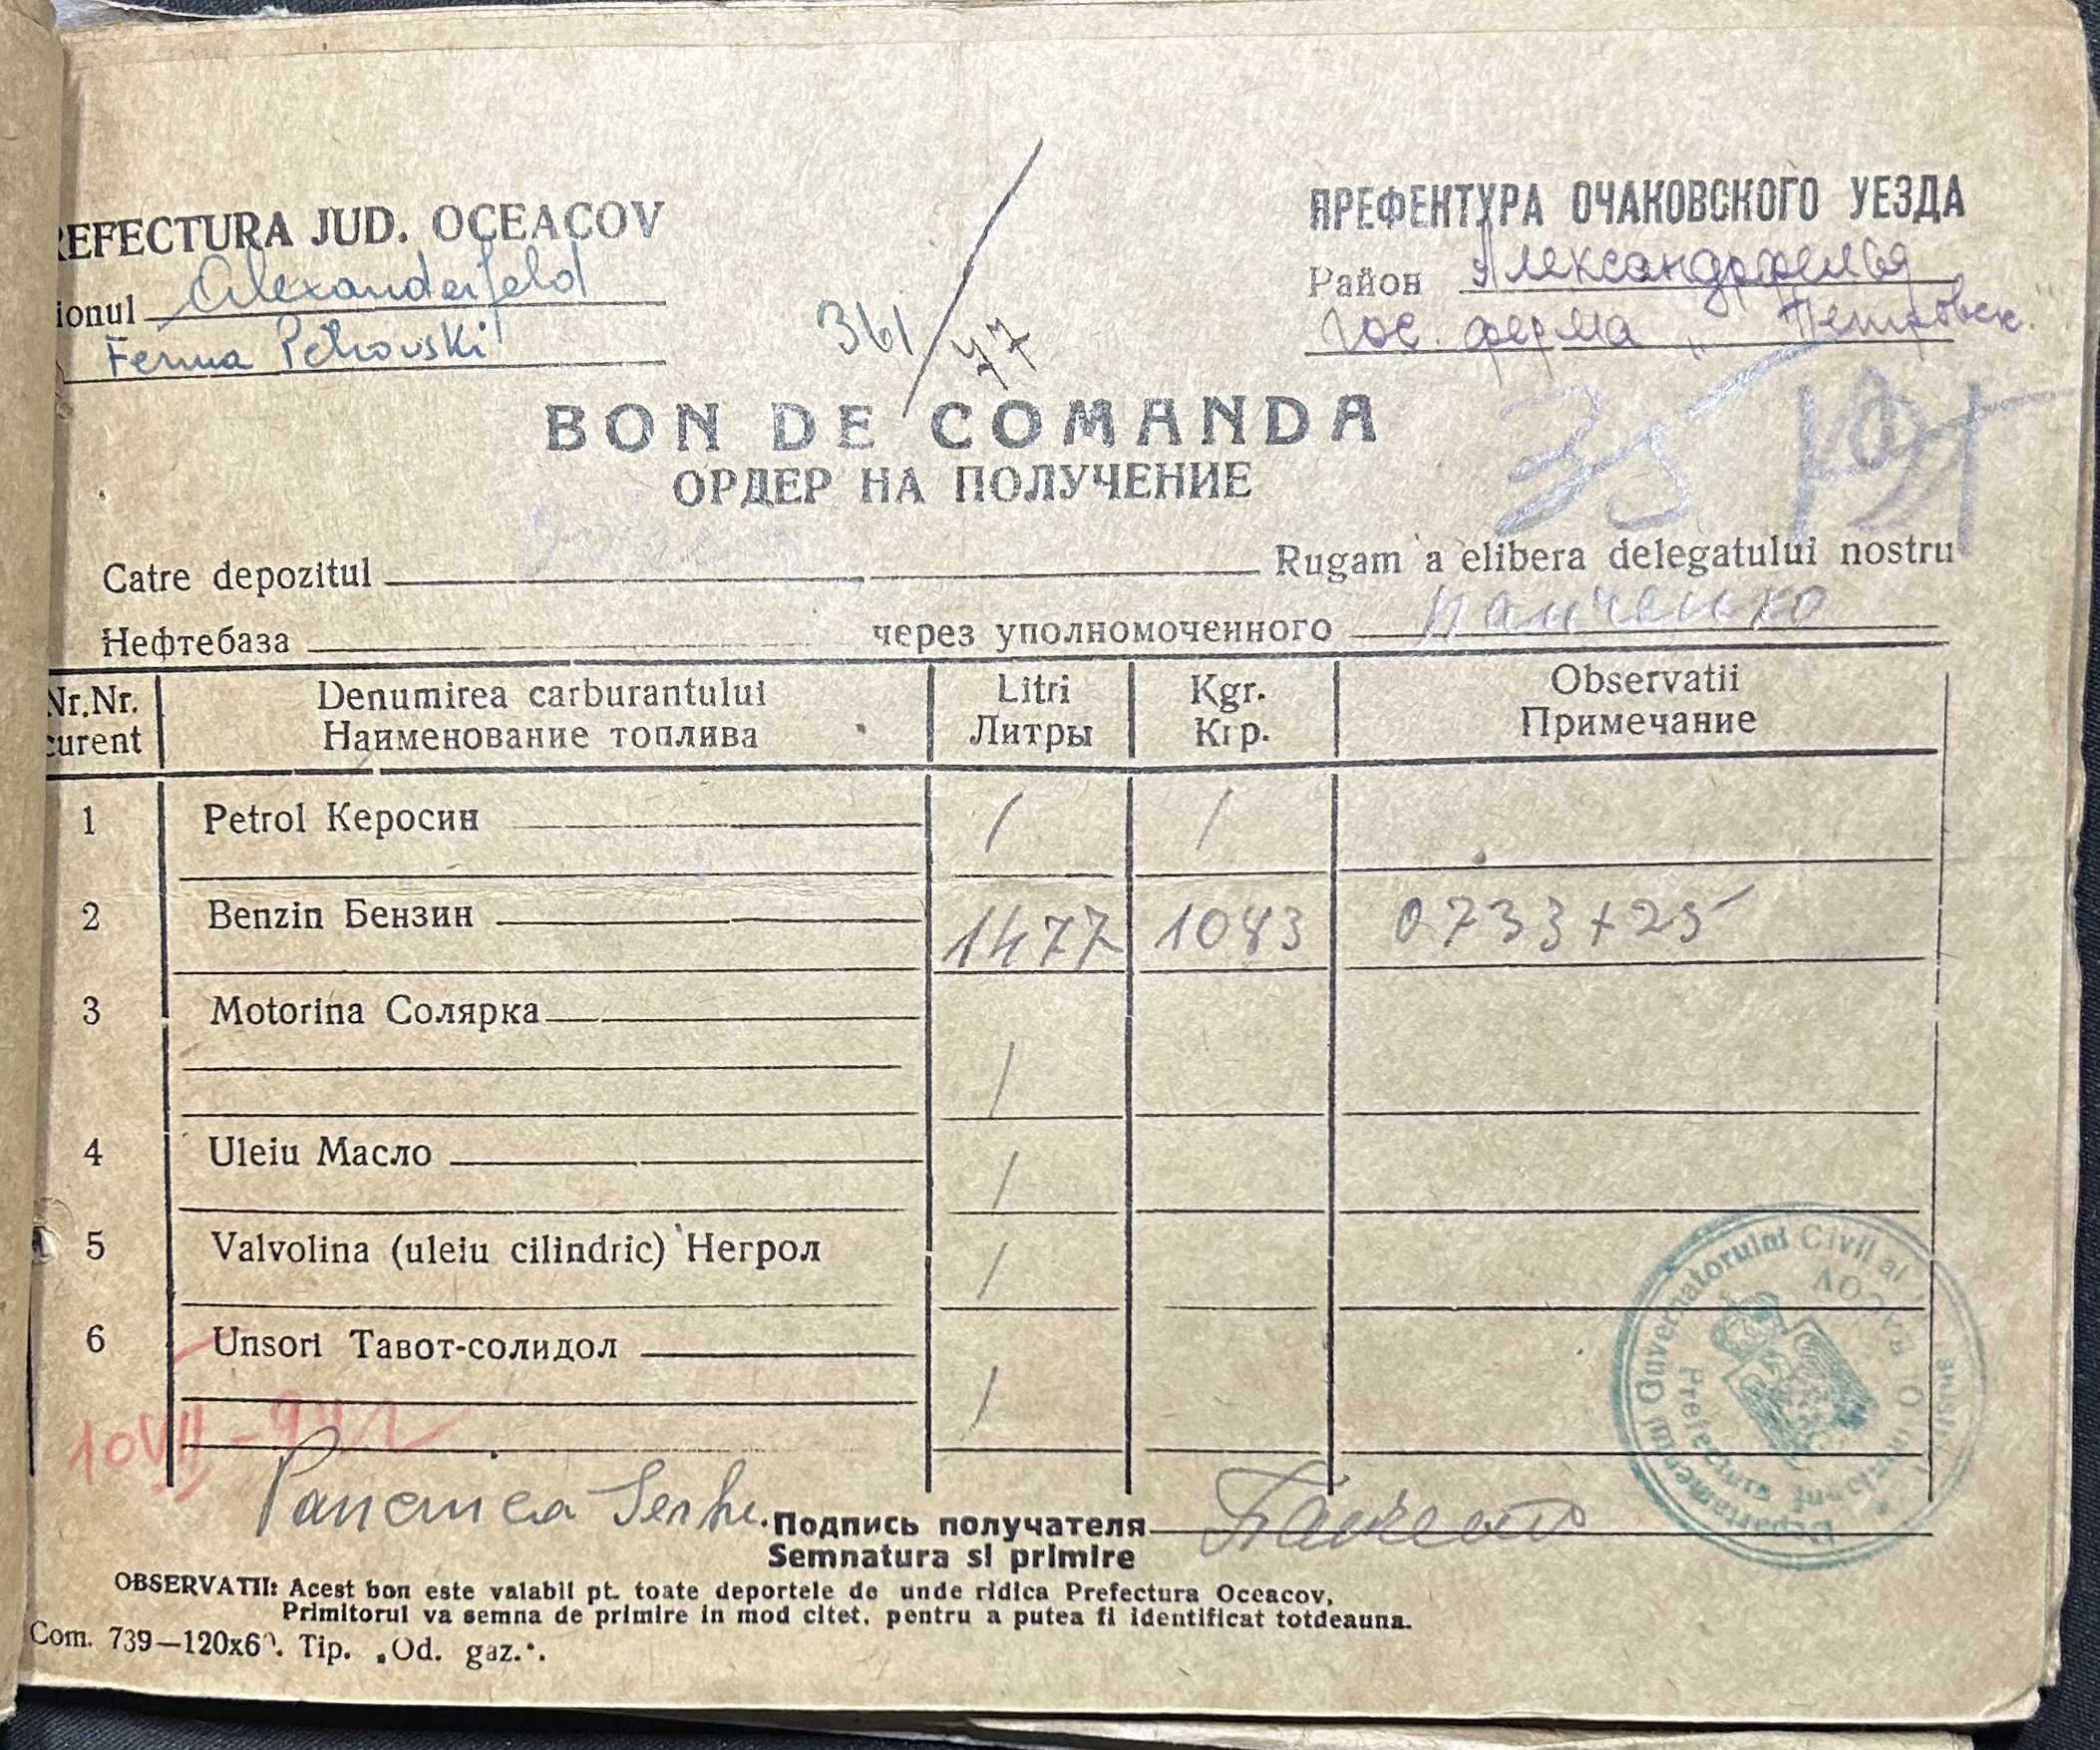 REFECTURA JUD. OCEACOV
ionul Alexanderfeld
Ferma Petrovski
361/77
ПРЕФЕНТУРА ОЧАКОВСКОГО УЕЗДА
Район Александрфельд
Гос. ферма „Петровск."
BON DE COMANDA
ОРДЕР НА ПОЛУЧЕНИЕ
35
Catre depozitul Rugam a elibera delegatului nostru
Нефтебаза через уполномоченного Панченко
Nr.Nr. curent
Denumirea carburantului
Наименование топлива
Litri
Литры
Kgr.
Кгр.
Observatii
Примечание
1 Petrol Керосин / /
2 Benzin Бензин 1477 1083 0733+25
3 Motorina Солярка /
4 Uleiu Масло /
5 Valvolina (uleiu cilindric) Негрол /
6 Unsori Тавот-солидол /
10 VII - 942
Подпись получателя
Semnatura si primire
OBSERVATII: Acest bon este valabil pt. toate deportele de unde ridica Prefectura Oceacov,
Primitorul va semna de primire in mod citet, pentru a putea fi identificat totdeauna.
Com. 739—120x60. Tip. „Od. gaz.".
Guvernatorului Civil al
Prefectura